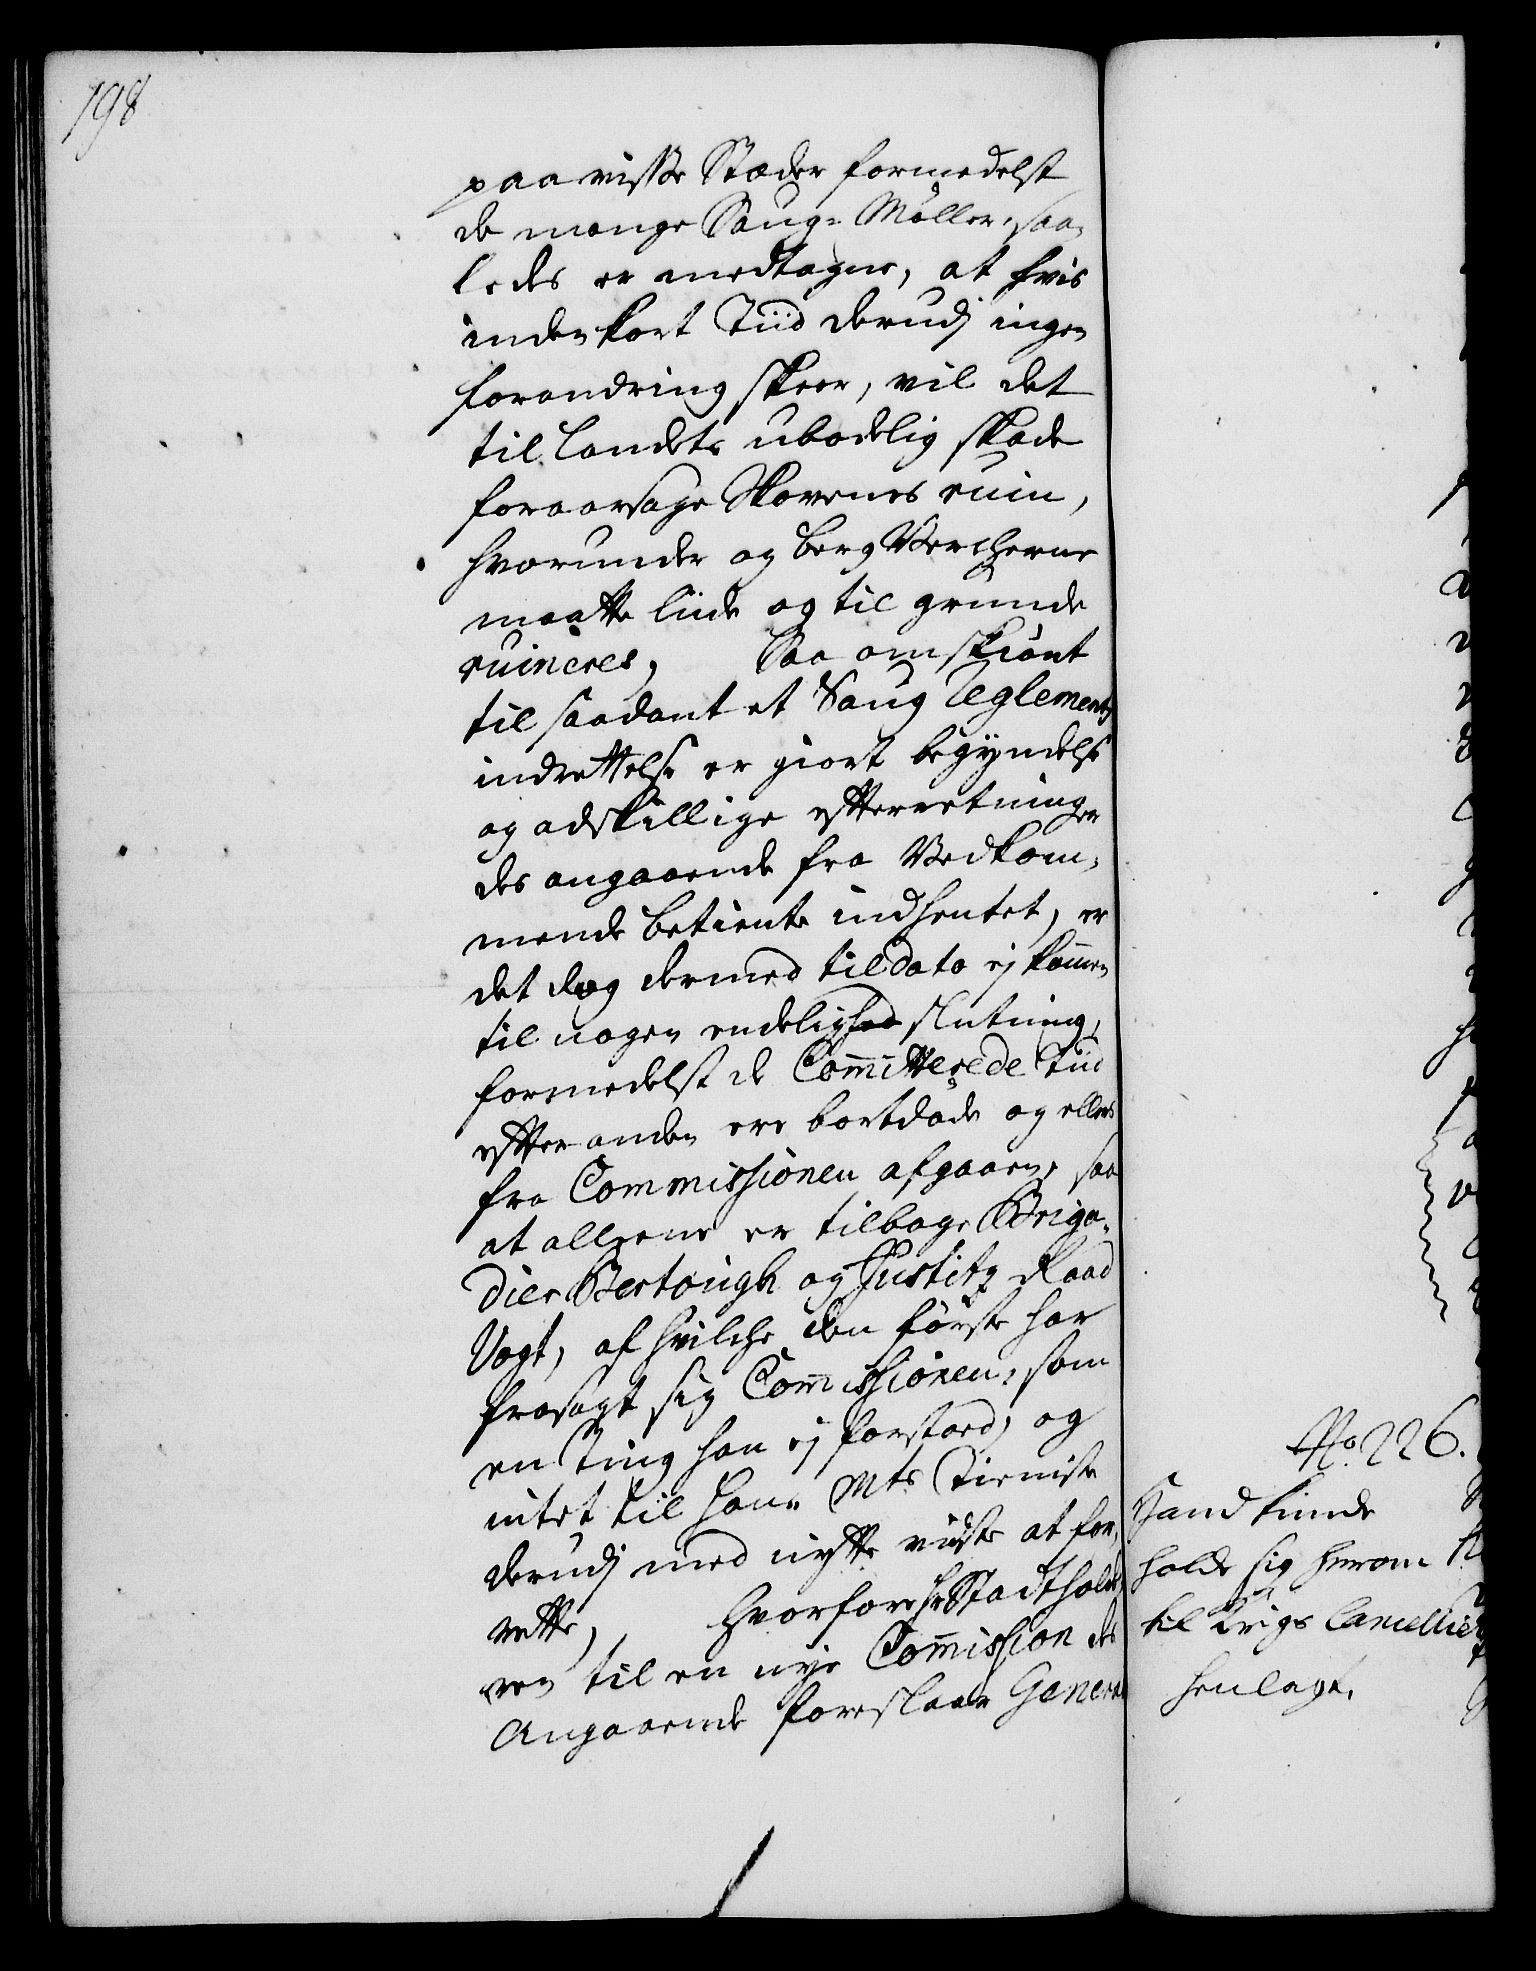 198
paa visse Stæder formedelst
de mange Saug-Møller, saa-
ledes er medtagne, at hvis
inden kort Tiid derudj ingen
forandring skeer, vil det
til landets ubodelig skade
foraarsage Skovenes ruin,
hvorunder og berg Vercherne
maatte liide og til grunde
ruineres, Saa omskiønt
til saadant et Saug Reglements
indrettelse er giort begyndelse
og adskillige efterretninger
des angaaende fra Vedkom-
mende betiente indhentet, er
det dog dermed til dato ej kommen
til nogen endelighed slutning,
formedelst de Committerede Tiid
efter anden ere bortdøde og ellers
fra Commissionen afgaaen, saa
at alleene er tilbage Briga-
dier Bertouigh og Justitz Raad
Vogt, af hvilche den første har
frasagt sig Commissionen, som
en Ting han ej forstoed, og
intet til Hans Mts Tieniste
derudj med nytte viste at for-
rette, Hvorfore hr Stadtholde-
ren til en nye Commission des
Angaaende foreslaar General
No. 226.
Hand kunde
holde sig herom
til Krigs Cancelliet
henlagt.